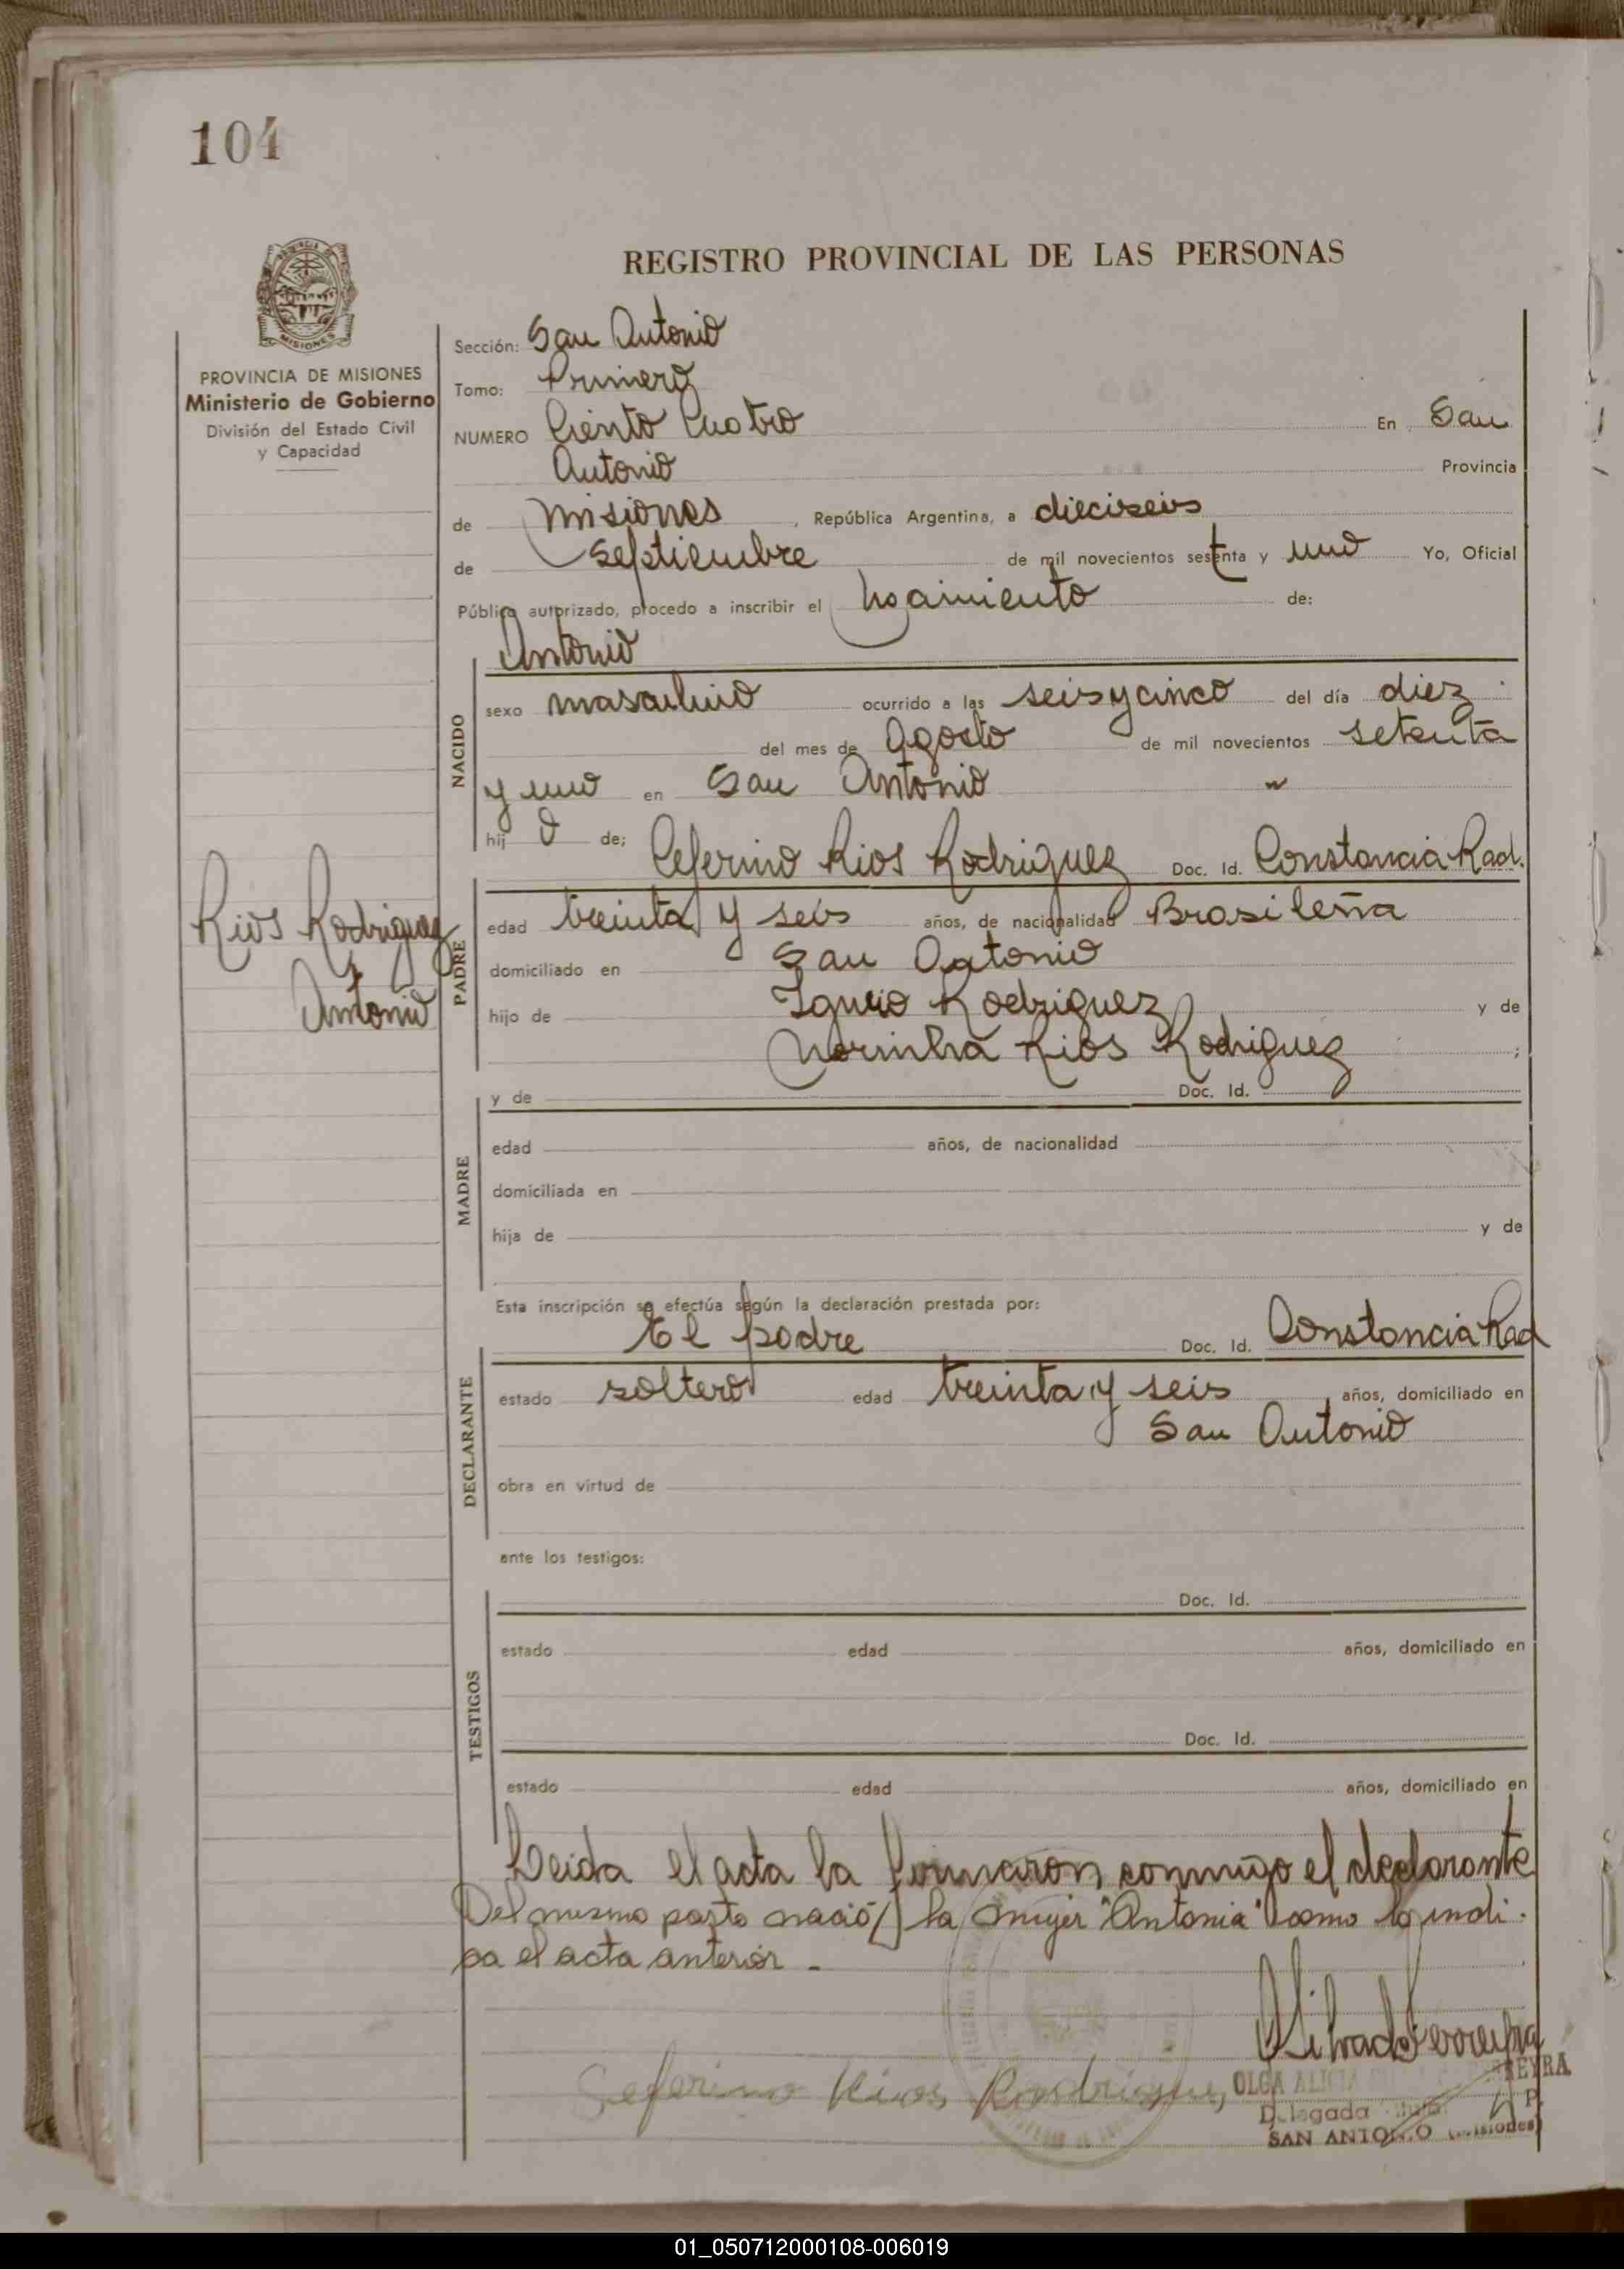 104
REGISTRO PROVINCIAL DE LAS PERSONAS
MISIONES
PROVINCIA DE MISIONES
Ministerio de Gobierno
División del Estado Civil
y Capacidad
Sección: San Antonio
Tomo: Primero
NUMERO Ciento Cuatro En San
Antonio Provincia
de Misiones, República Argentina, a dieciseis
de septiembre de mil novecientos setenta y uno Yo, Oficial
Público autorizado, procedo a inscribir el nacimiento de:
Antonio
NACIDO
sexo masculino ocurrido a las seis y cinco del día diez
del mes de Agosto de mil novecientos setenta
y uno en San Antonio
hijo de; Ceferino Rios Rodriguez Doc. Id. Constancia Rad.
Rios Rodriguez
Antonio
PADRE
edad treinta y seis años, de nacionalidad Brasileña
domiciliado en San Antonio
hijo de Rodriguez y de
Rios Rodriguez ;
MADRE
y de Doc. Id.
edad años, de nacionalidad
domiciliada en
hija de y de
Esta inscripción se efectúa según la declaración prestada por:
El padre Doc. Id. Constancia Rad
DECLARANTE
estado soltero edad treinta y seis años, domiciliado en
San Antonio
obra en virtud de
ante los testigos:
TESTIGOS
Doc. Id.
estado edad años, domiciliado en
Doc. Id.
estado edad años, domiciliado en
Leida el acta la firmaron conmigo el declarante
Del mismo parto nació la mujer "Antonia" como lo indi-
ca el acta anterior -
Seferino Rios Rodrigue,
OLGA ALICIA
Delegada
SAN ANTONIO (Misiones)
01_050712000108-006019